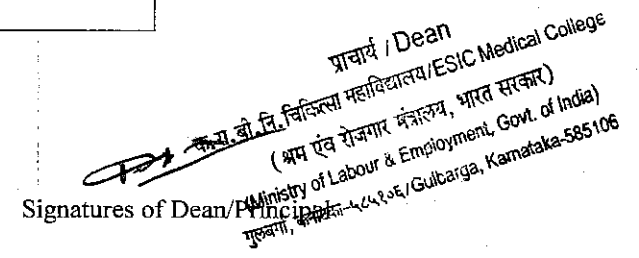 प्राचार्य / Dean
क.रा.बी.नि. चिकित्सा महाविद्यालय/ESIC Medical College
( श्रम एंव रोजगार मंत्रालय, भारत सरकार)
(Ministry of Labour & Employment, Govt. of India)
गुलबर्गा, कर्नाटका-५८५१०६/Gulbarga, Karnataka-585106
Signatures of Dean/Principal